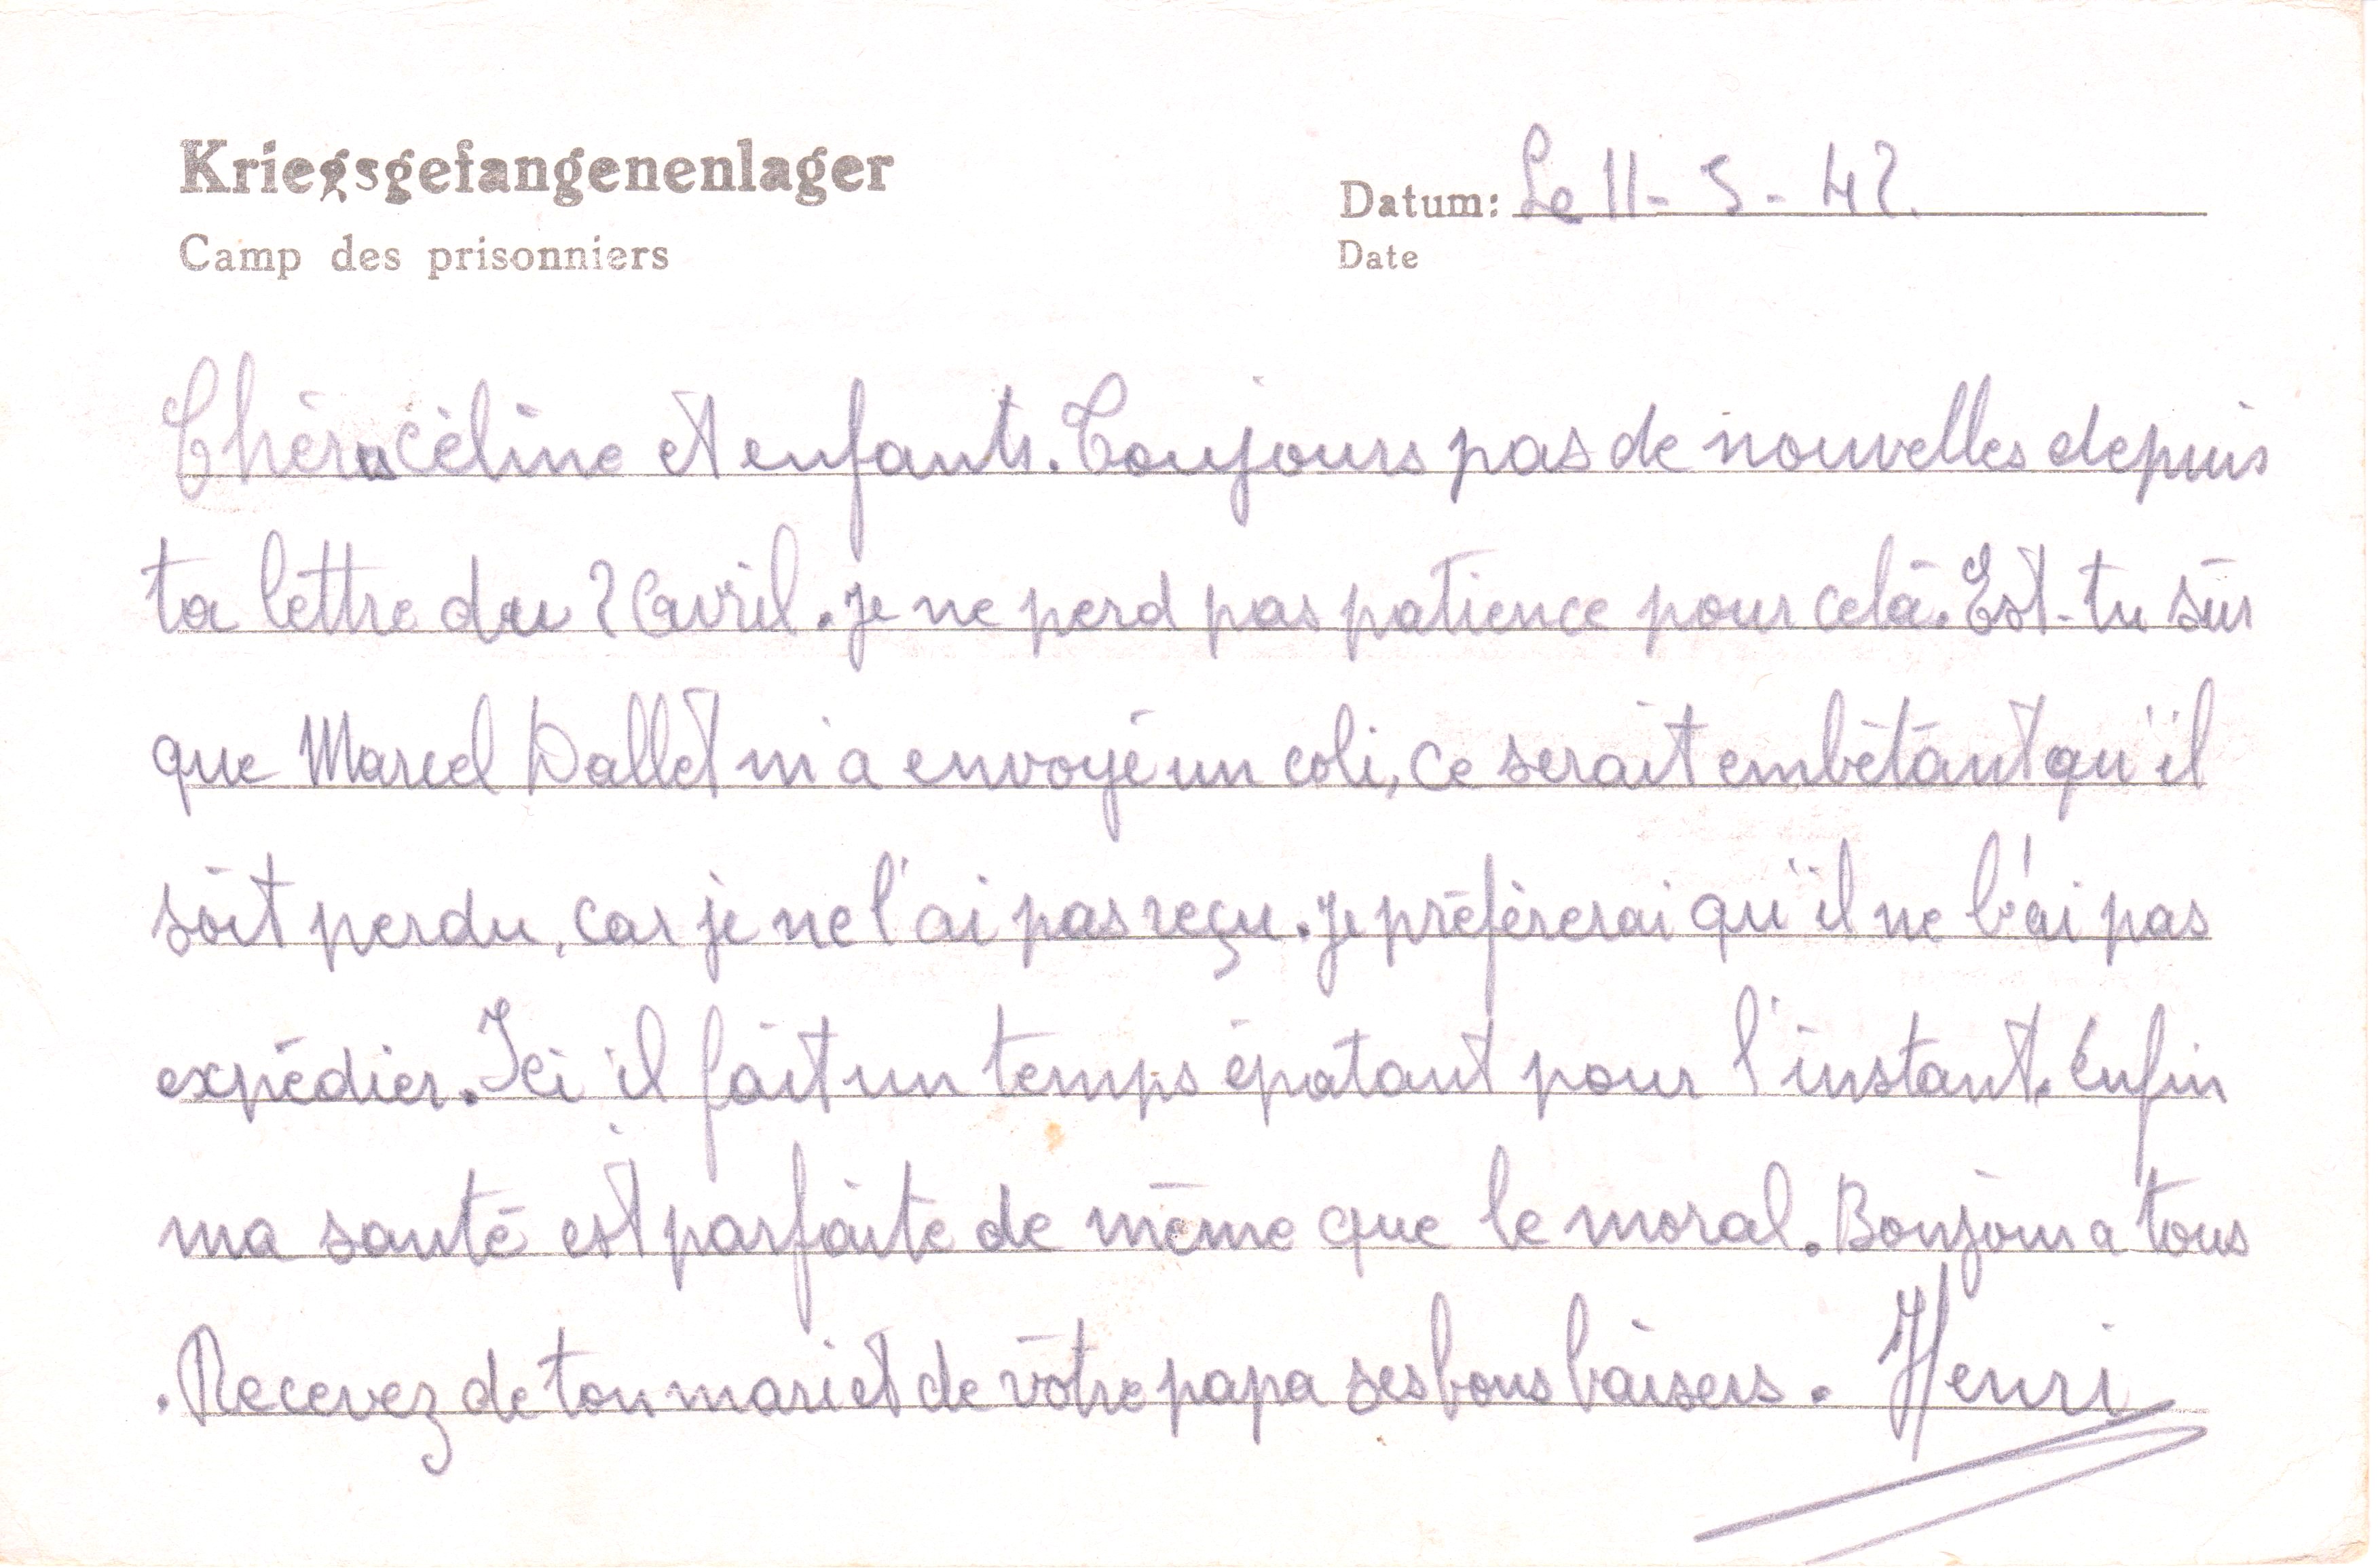 Kriegsgefangenenlager
Camp des prisonniers
Datum: Le 11-5-42.
Date
Chère céline et enfants. Toujours pas de nouvelles depuis
ta lettre du 2 avril. je ne perd pas patience pour celà. Est-tu sûr
que Marcel Dallet m'a envoyé un coli, ce serait embêtant qu'il
soit perdu, car je ne l'ai pas reçu. je préfèrerai qu'il ne l'ai pas
expédier. Ici il fait un temps épatant pour l'instant. Enfin
ma santé est parfaite de même que le moral. Bonjour a tous
. Recevez de ton mari et de vôtre papa ses bons baisers. Henri